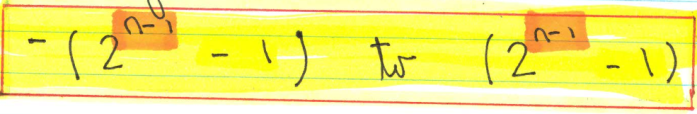 -(2^{n-1} - 1) to (2^{n-1} - 1)